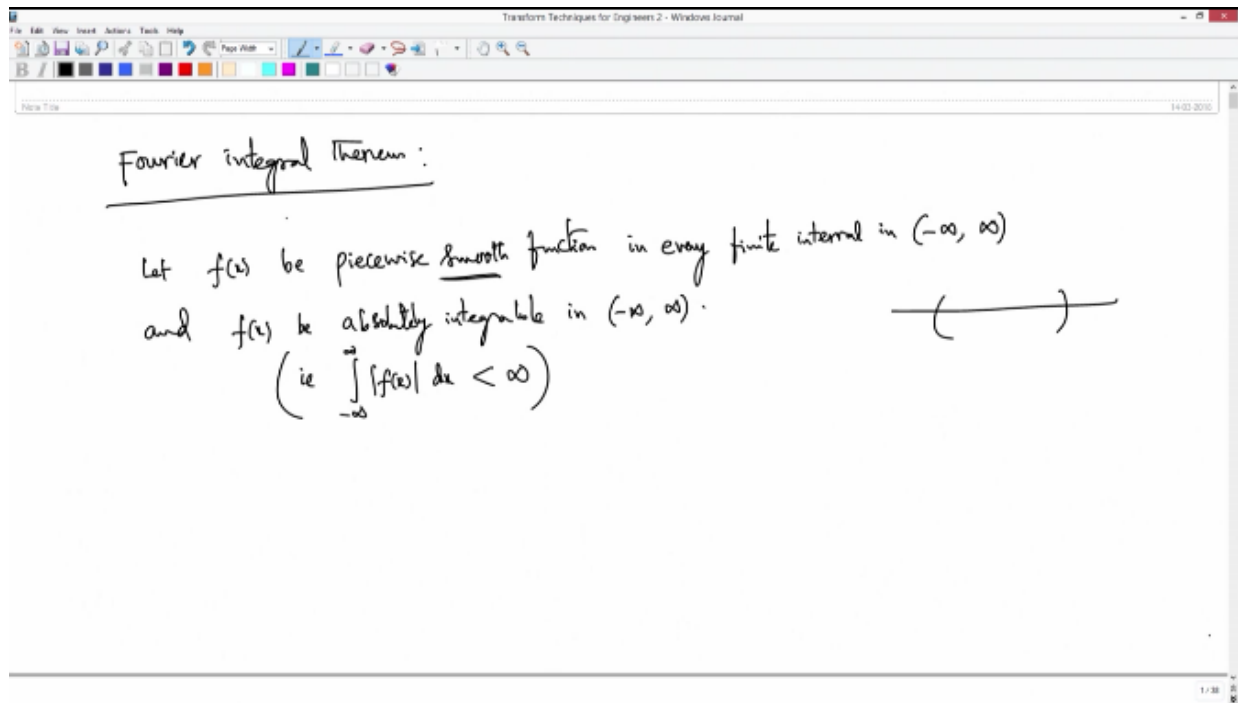 Transform Techniques for Engineers 2 - Windows Journal
File Edit View Insert Actions Tools Help
Page Width
B I
Note Title
14-03-2018
Fourier integral Theorem :
Let f(x) be piecewise smooth function in every finite interval in (-∞, ∞)
and f(x) be absolutely integrable in (-∞, ∞).
(ie ∫_{-∞}^{∞} |f(x)| dx < ∞)
1 / 38